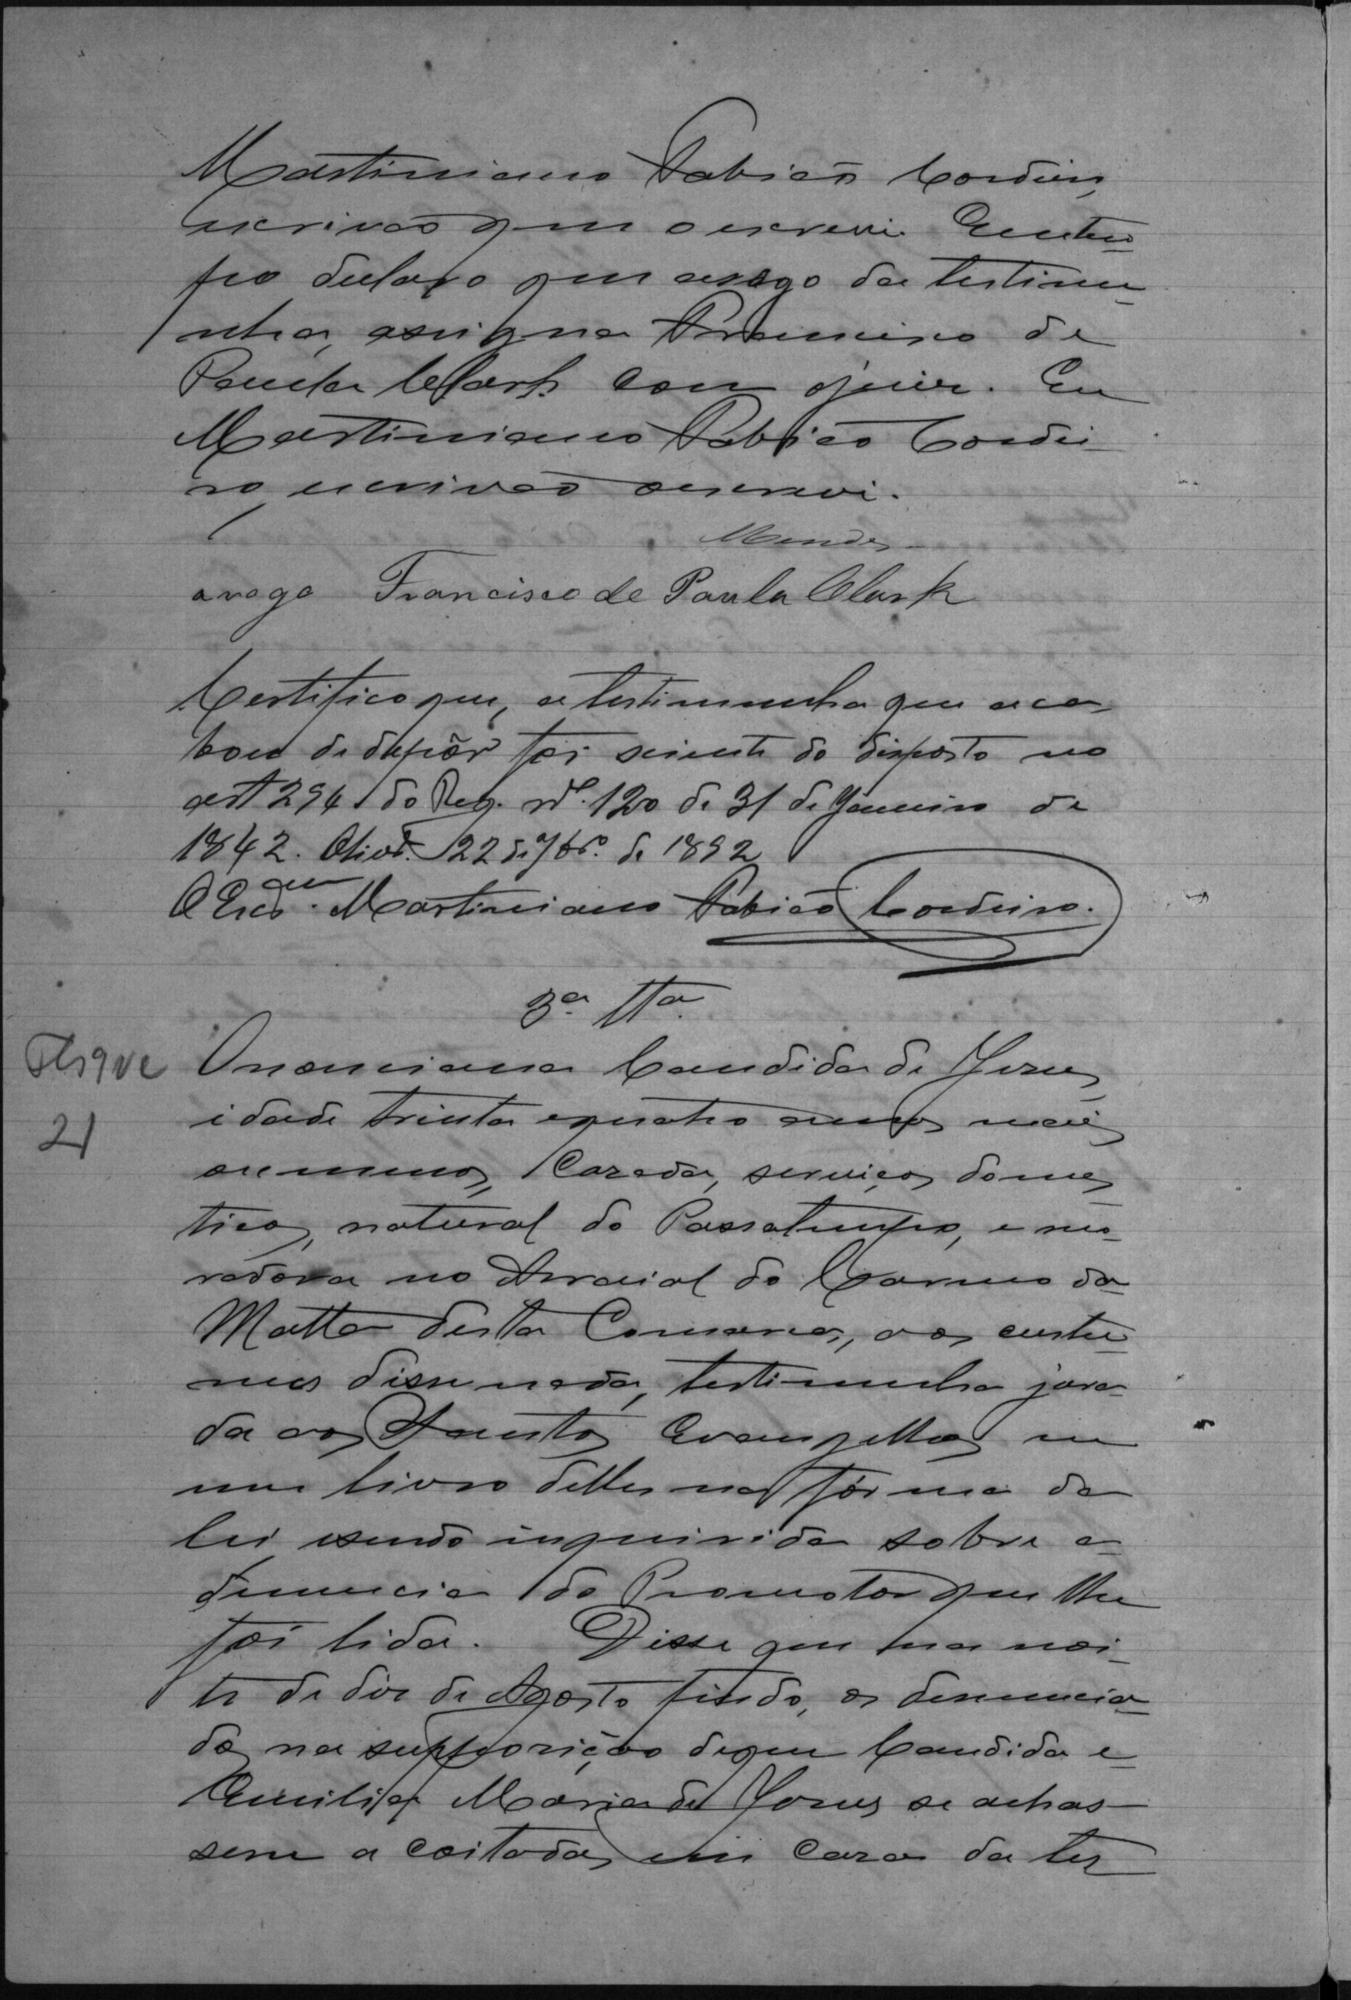 Martiniano Fabião Cordeiro,
escrivão que o escrevi. Em tem-
po declaro que arogo da testimu-
nha, assigna Francisco de
Paula Clark com o juiz. Eu
Martiniano Fabião Cordei-
ro, escrivão oescrevi.
Mendes
a rogo Francisco de Paula Clark
Certifico que, a testimunha que aca-
bou de depôr foi sciente do disposto no
art 294 do Reg. nº. 120 de 31 de Janeiro de
1842. Olivª. 22 de 7brº. de 1892
O Escam. Martiniano Fabião Cordeiro.
3ª. tta.
Onanciana Candida de Jesus,
idade trinta equatro annos mais
ou menos, Cazada, serviços domes
ticos, natural do Passatempo, e mo-
radora no Arraial do Carmo da
Matta desta Comarca, aos custu-
mes disse nada, testimunha jura-
da aos Santos Evangelhos em
um livro delles na fórma da
lei esendo inquirida sobre a
denuncia do Promotor que lhe
foi lida. Disse que na noi-
te de dois de Agosto findo, os denuncia-
dos na supposição deque Candida e
Emilia Maria de Jesus se achas-
sem a coitadas em caza da tes
21